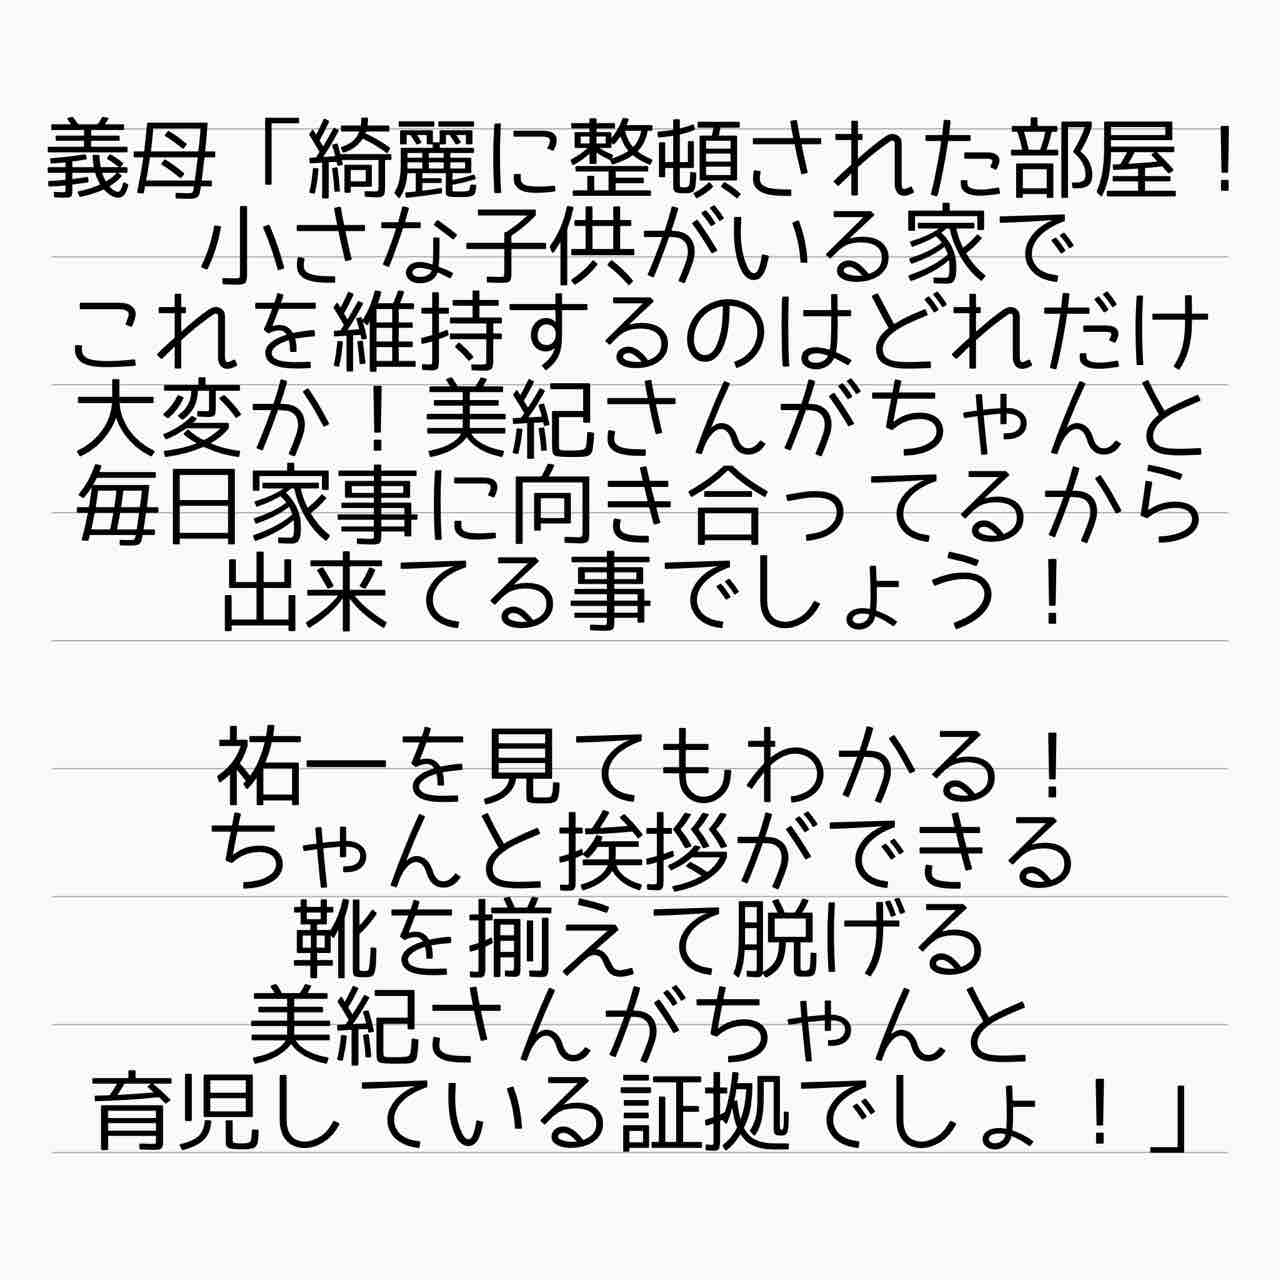 義母「綺麗に整頓された部屋！
小さな子供がいる家で
これを維持するのはどれだけ
大変か！美紀さんがちゃんと
毎日家事に向き合ってるから
出来てる事でしょう！
祐一を見てもわかる！
ちゃんと挨拶ができる
靴を揃えて脱げる
美紀さんがちゃんと
育児している証拠でしょ！」